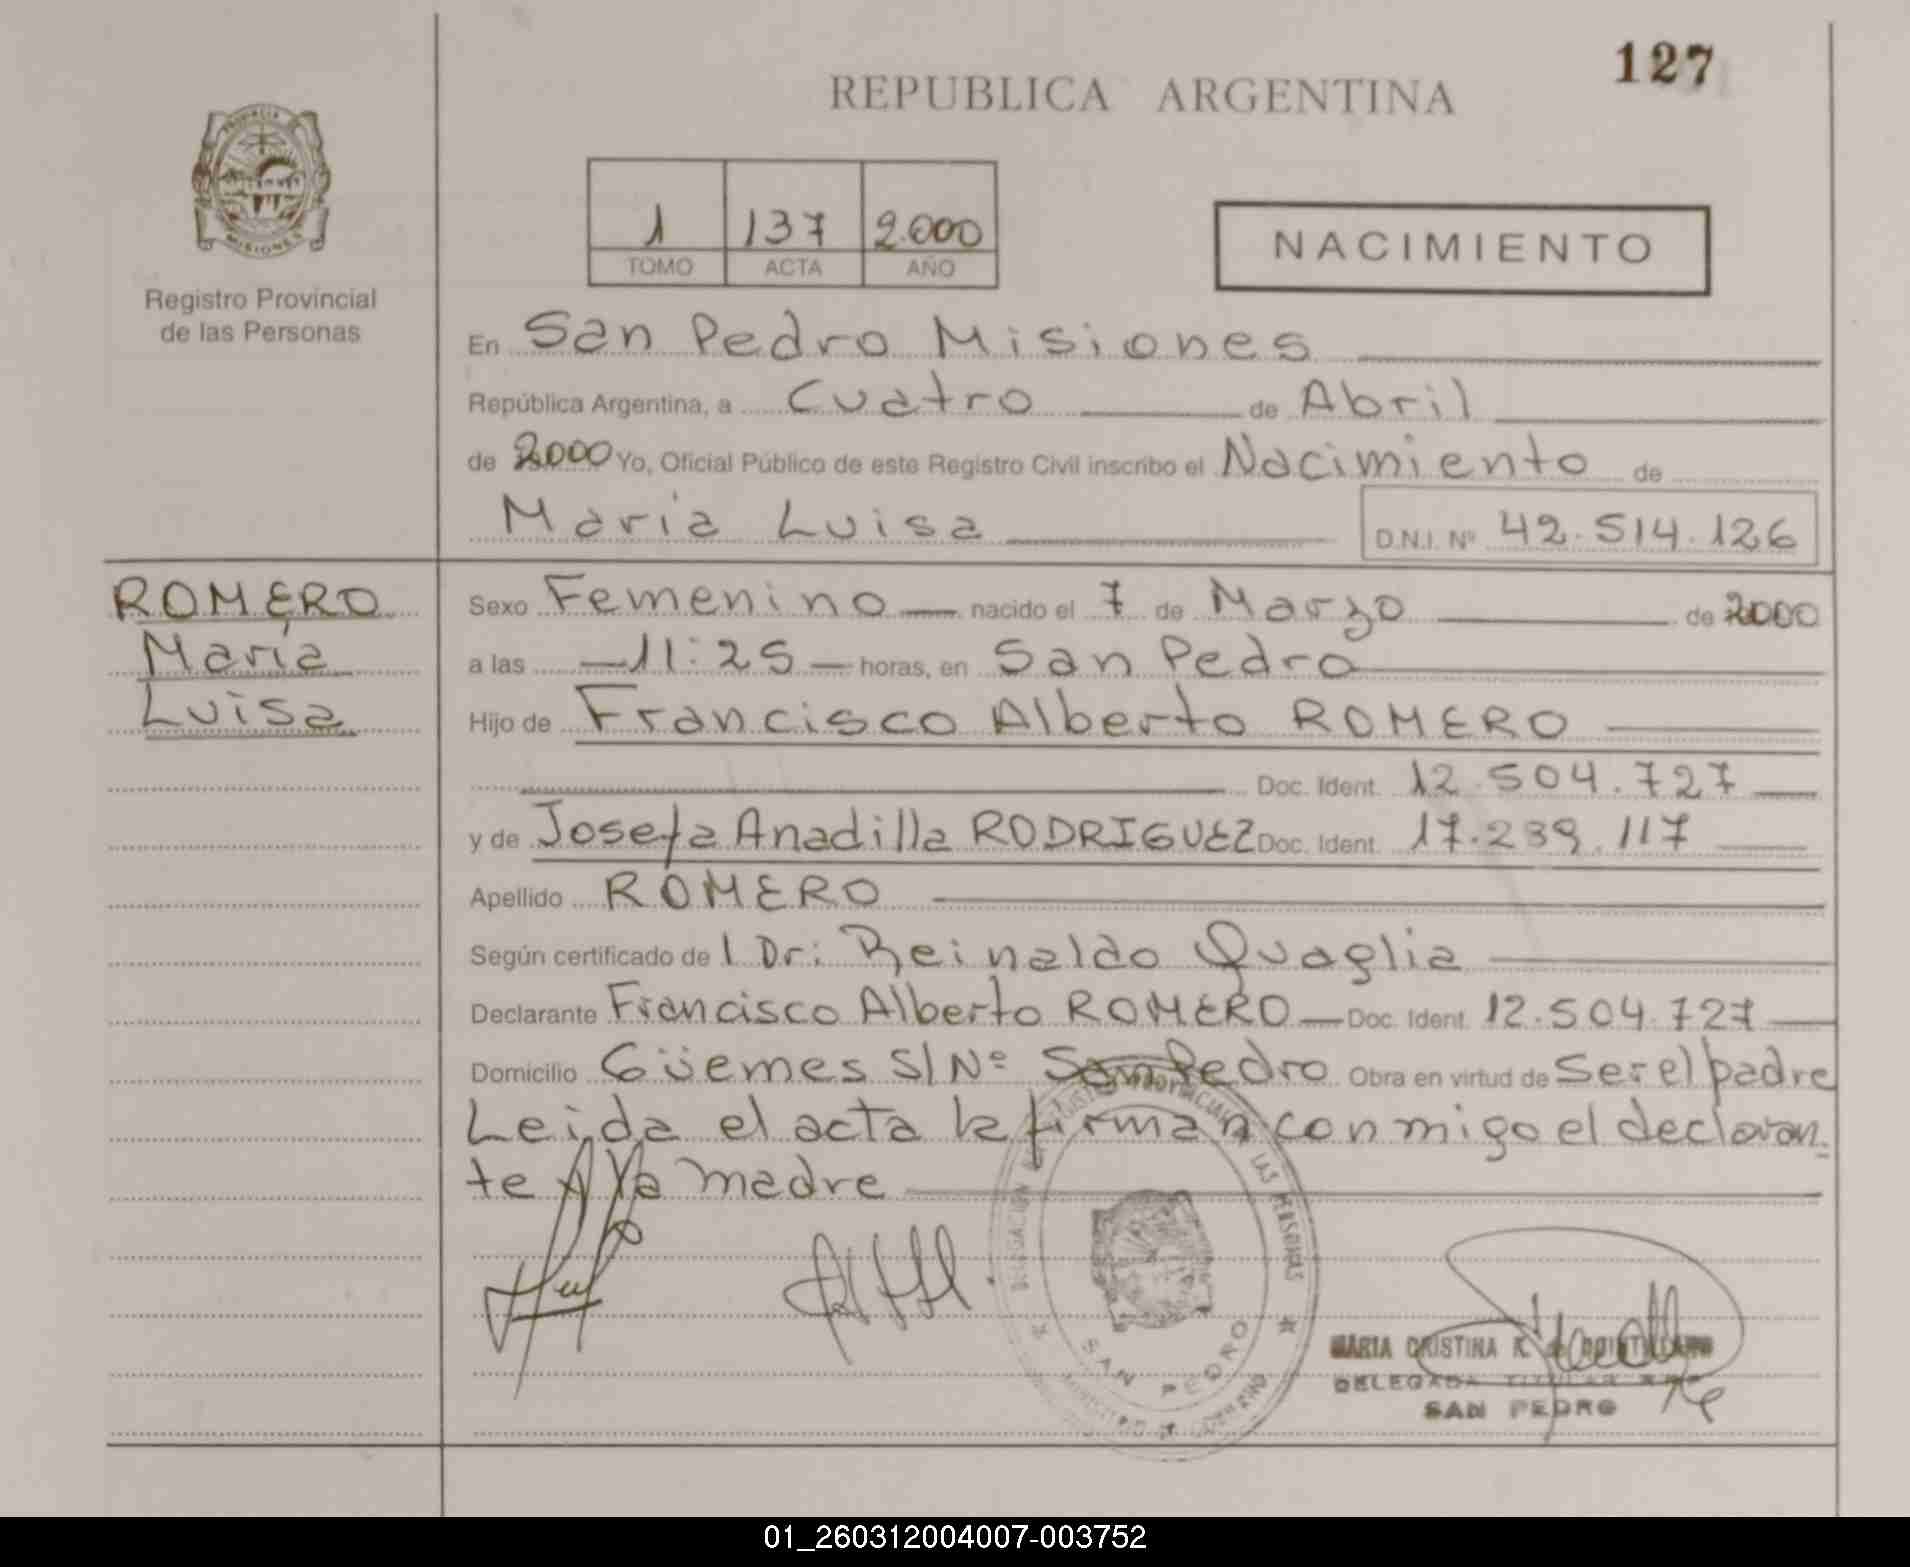 127
REPUBLICA ARGENTINA
PROVINCIA DE
MISIONES
Registro Provincial
de las Personas
1 137 2.000
TOMO ACTA AÑO
NACIMIENTO
En San Pedro Misiones
República Argentina, a Cuatro de Abril
de 2000 Yo, Oficial Público de este Registro Civil inscribo el Nacimiento de
María Luisa D.N.I. Nº 42.514.126
ROMERO
María
Luisa
Sexo Femenino nacido el 7 de Marzo de 2000
a las 11:25 horas, en San Pedro
Hijo de Francisco Alberto ROMERO
Doc. Ident. 12.504.727
y de Josefa Anadilla RODRIGUEZ Doc. Ident. 17.239.117
Apellido ROMERO
Según certificado de l Dr: Reinaldo Quaglia
Declarante Francisco Alberto ROMERO Doc. Ident. 12.504.727
Domicilio Güemes S/Nº San Pedro Obra en virtud de Ser el padre
Leida el acta la firman conmigo el declaran-
te y la madre
DELEGACION LAS PERSONAS
SAN PEDRO
MARIA CRISTINA R. de
DELEGADA TITULAR
SAN PEDRO
01_260312004007-003752